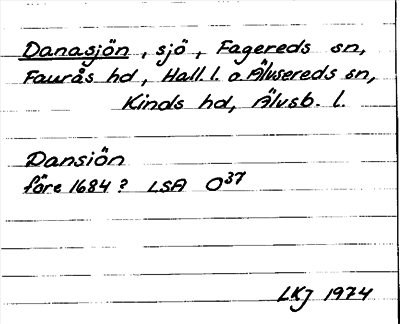 Danasjön, sjö, Fagereds sn,
Faurås hd, Hall. l. o. Älvsereds sn,
Kinds hd, Älvsb. l.
Dansiön
före 1684? LSA O37
LKJ 1974